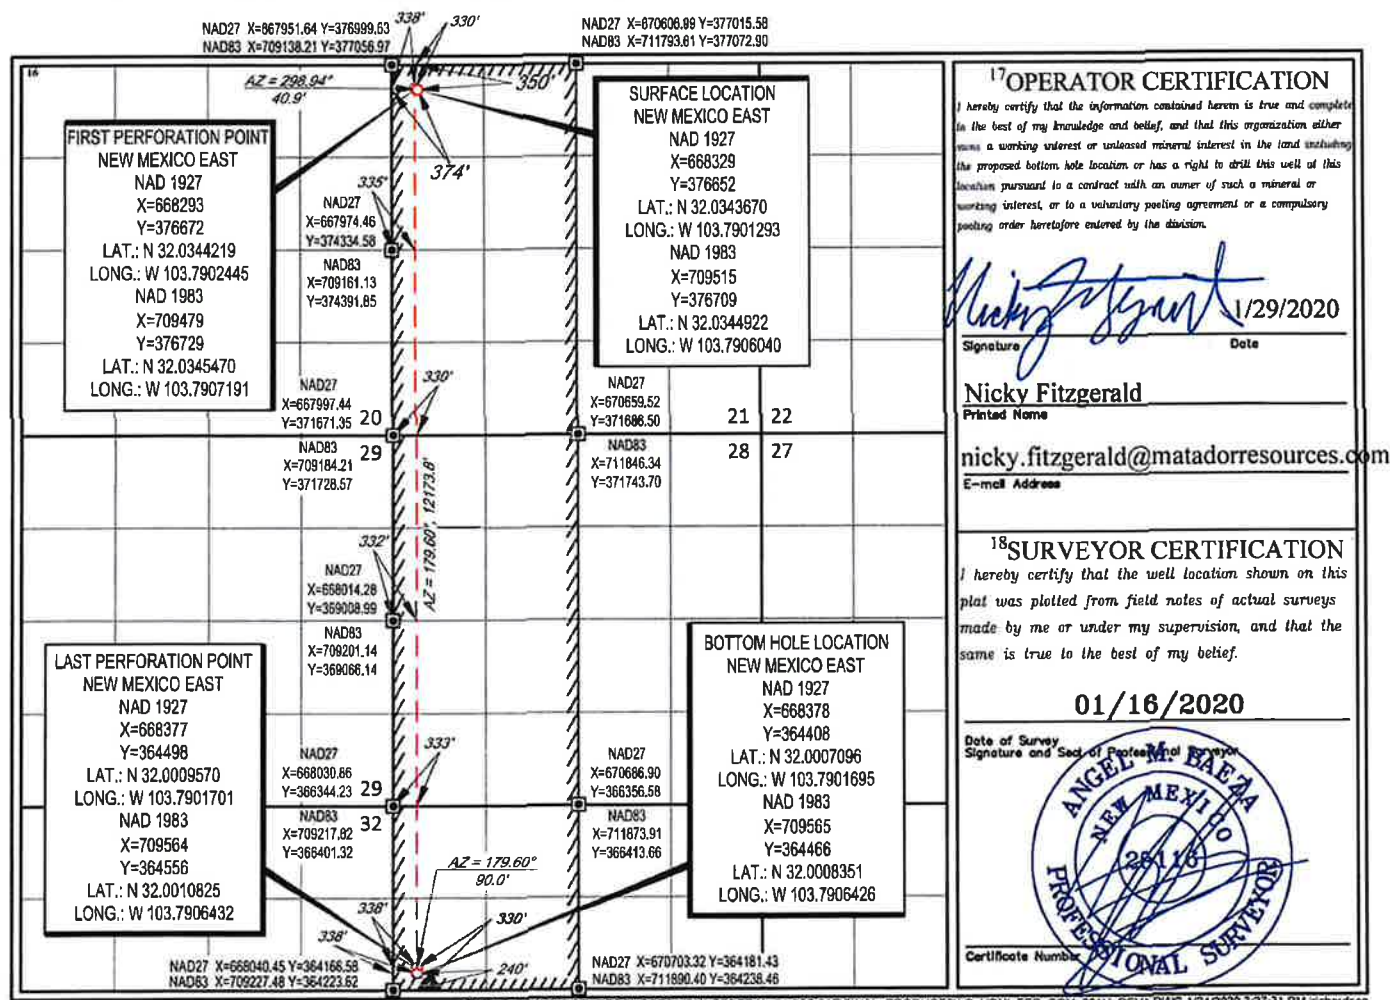 NAD27 X=667951.64 Y=376999.63
NAD83 X=709138.21 Y=377056.97
338'
330'
NAD27 X=670606.99 Y=377015.58
NAD83 X=711793.61 Y=377072.90
16
AZ = 298.94°
40.9'
350'
374'
FIRST PERFORATION POINT
NEW MEXICO EAST
NAD 1927
X=668293
Y=376672
LAT.: N 32.0344219
LONG.: W 103.7902445
NAD 1983
X=709479
Y=376729
LAT.: N 32.0345470
LONG.: W 103.7907191
335'
NAD27
X=667974.46
Y=374334.58
NAD83
X=709161.13
Y=374391.85
SURFACE LOCATION
NEW MEXICO EAST
NAD 1927
X=668329
Y=376652
LAT.: N 32.0343670
LONG.: W 103.7901293
NAD 1983
X=709515
Y=376709
LAT.: N 32.0344922
LONG.: W 103.7906040
NAD27
X=667997.44
Y=371671.35
20
29
NAD83
X=709184.21
Y=371728.57
330'
NAD27
X=670659.52
Y=371686.50
NAD83
X=711846.34
Y=371743.70
21 22
28 27
AZ = 179.60°, 12173.8'
332'
NAD27
X=668014.28
Y=369008.99
NAD83
X=709201.14
Y=369066.14
LAST PERFORATION POINT
NEW MEXICO EAST
NAD 1927
X=668377
Y=364498
LAT.: N 32.0009570
LONG.: W 103.7901701
NAD 1983
X=709564
Y=364556
LAT.: N 32.0010825
LONG.: W 103.7906432
BOTTOM HOLE LOCATION
NEW MEXICO EAST
NAD 1927
X=668378
Y=364408
LAT.: N 32.0007096
LONG.: W 103.7901695
NAD 1983
X=709565
Y=364466
LAT.: N 32.0008351
LONG.: W 103.7906426
333'
NAD27
X=668030.86
Y=366344.23
29
32
NAD83
X=709217.82
Y=366401.32
NAD27
X=670686.90
Y=366356.58
NAD83
X=711873.91
Y=366413.66
AZ = 179.60°
90.0'
338'
330'
338'
240'
NAD27 X=668040.45 Y=364166.58
NAD83 X=709227.48 Y=364223.62
NAD27 X=670703.32 Y=364181.43
NAD83 X=711890.40 Y=364238.46
17 OPERATOR CERTIFICATION
I hereby certify that the information contained herein is true and complete
to the best of my knowledge and belief, and that this organization either
owns a working interest or unleased mineral interest in the land including
the proposed bottom hole location or has a right to drill this well at this
location pursuant to a contract with an owner of such a mineral or
working interest, or to a voluntary pooling agreement or a compulsory
pooling order heretofore entered by the division.
Nicky Fitzgerald
1/29/2020
Signature Date
Nicky Fitzgerald
Printed Name
nicky.fitzgerald@matadorresources.com
E-mail Address
18 SURVEYOR CERTIFICATION
I hereby certify that the well location shown on this
plat was plotted from field notes of actual surveys
made by me or under my supervision, and that the
same is true to the best of my belief.
01/16/2020
Date of Survey
Signature and Seal of Professional Surveyor
ANGEL M. BAEZA
NEW MEXICO
25116
PROFESSIONAL SURVEYOR
Certificate Number